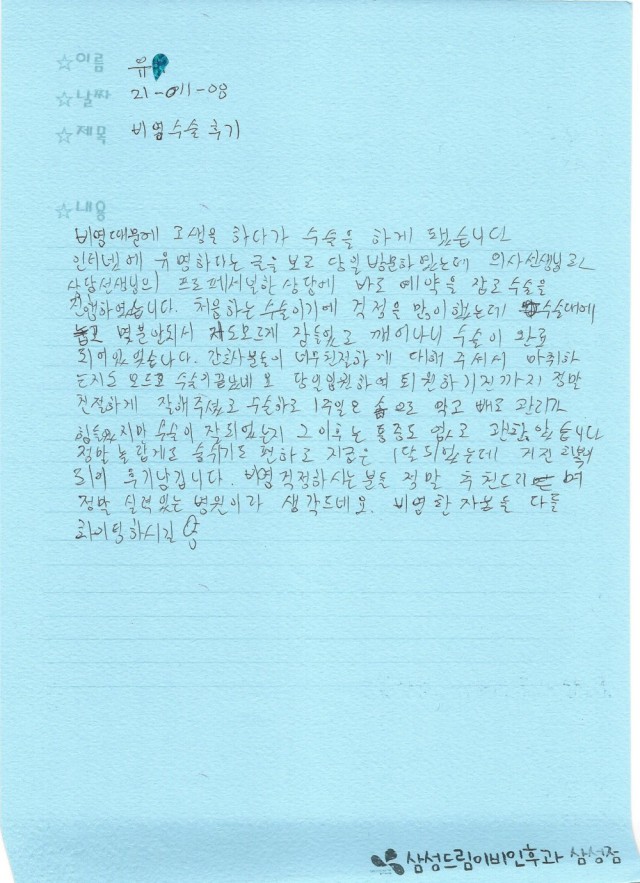 ☆이름 유
☆날짜 21-011-08
☆제목 비염수술 후기
☆내용
비영때문에 고생을 하다가 수술을 하게 됐습니다
인터넷에 유명하다는 글을 보고 당일 방문하였는데 의사선생님과
상담선생님의 프로페셔널한 상담에 바로 예약을 잡고 수술을
진행하였습니다. 처음하는 수술이기에 걱정을 많이했는데 수술대에
눕고 몇분안되서 저도모르게 잠들었고 깨어나니 수술이 완료
되어있었습니다. 간호사분들이 너무친절하게 대해 주셔서 마취하
는지도 모르고 수술이끝났네요 당일입원하여 퇴원하기전까지 정말
친절하게 잘해주셨고 수술하고 1주일은 솜으로 막고 배로 관리가
힘들었지만 수술이 잘되었는지 그 이후는 통증도 없고 괜찮았습니다
정말 놀랍게도 숨쉬기도 편하고 지금은 1달되었는데 거진 회복
되어 후기남깁니다. 비영걱정하시는분들 정말 추천드리며
정말 실력있는 병원이라 생각드네요. 비영환자분들 다들
화이팅하시길
삼성드림이비인후과 삼성점